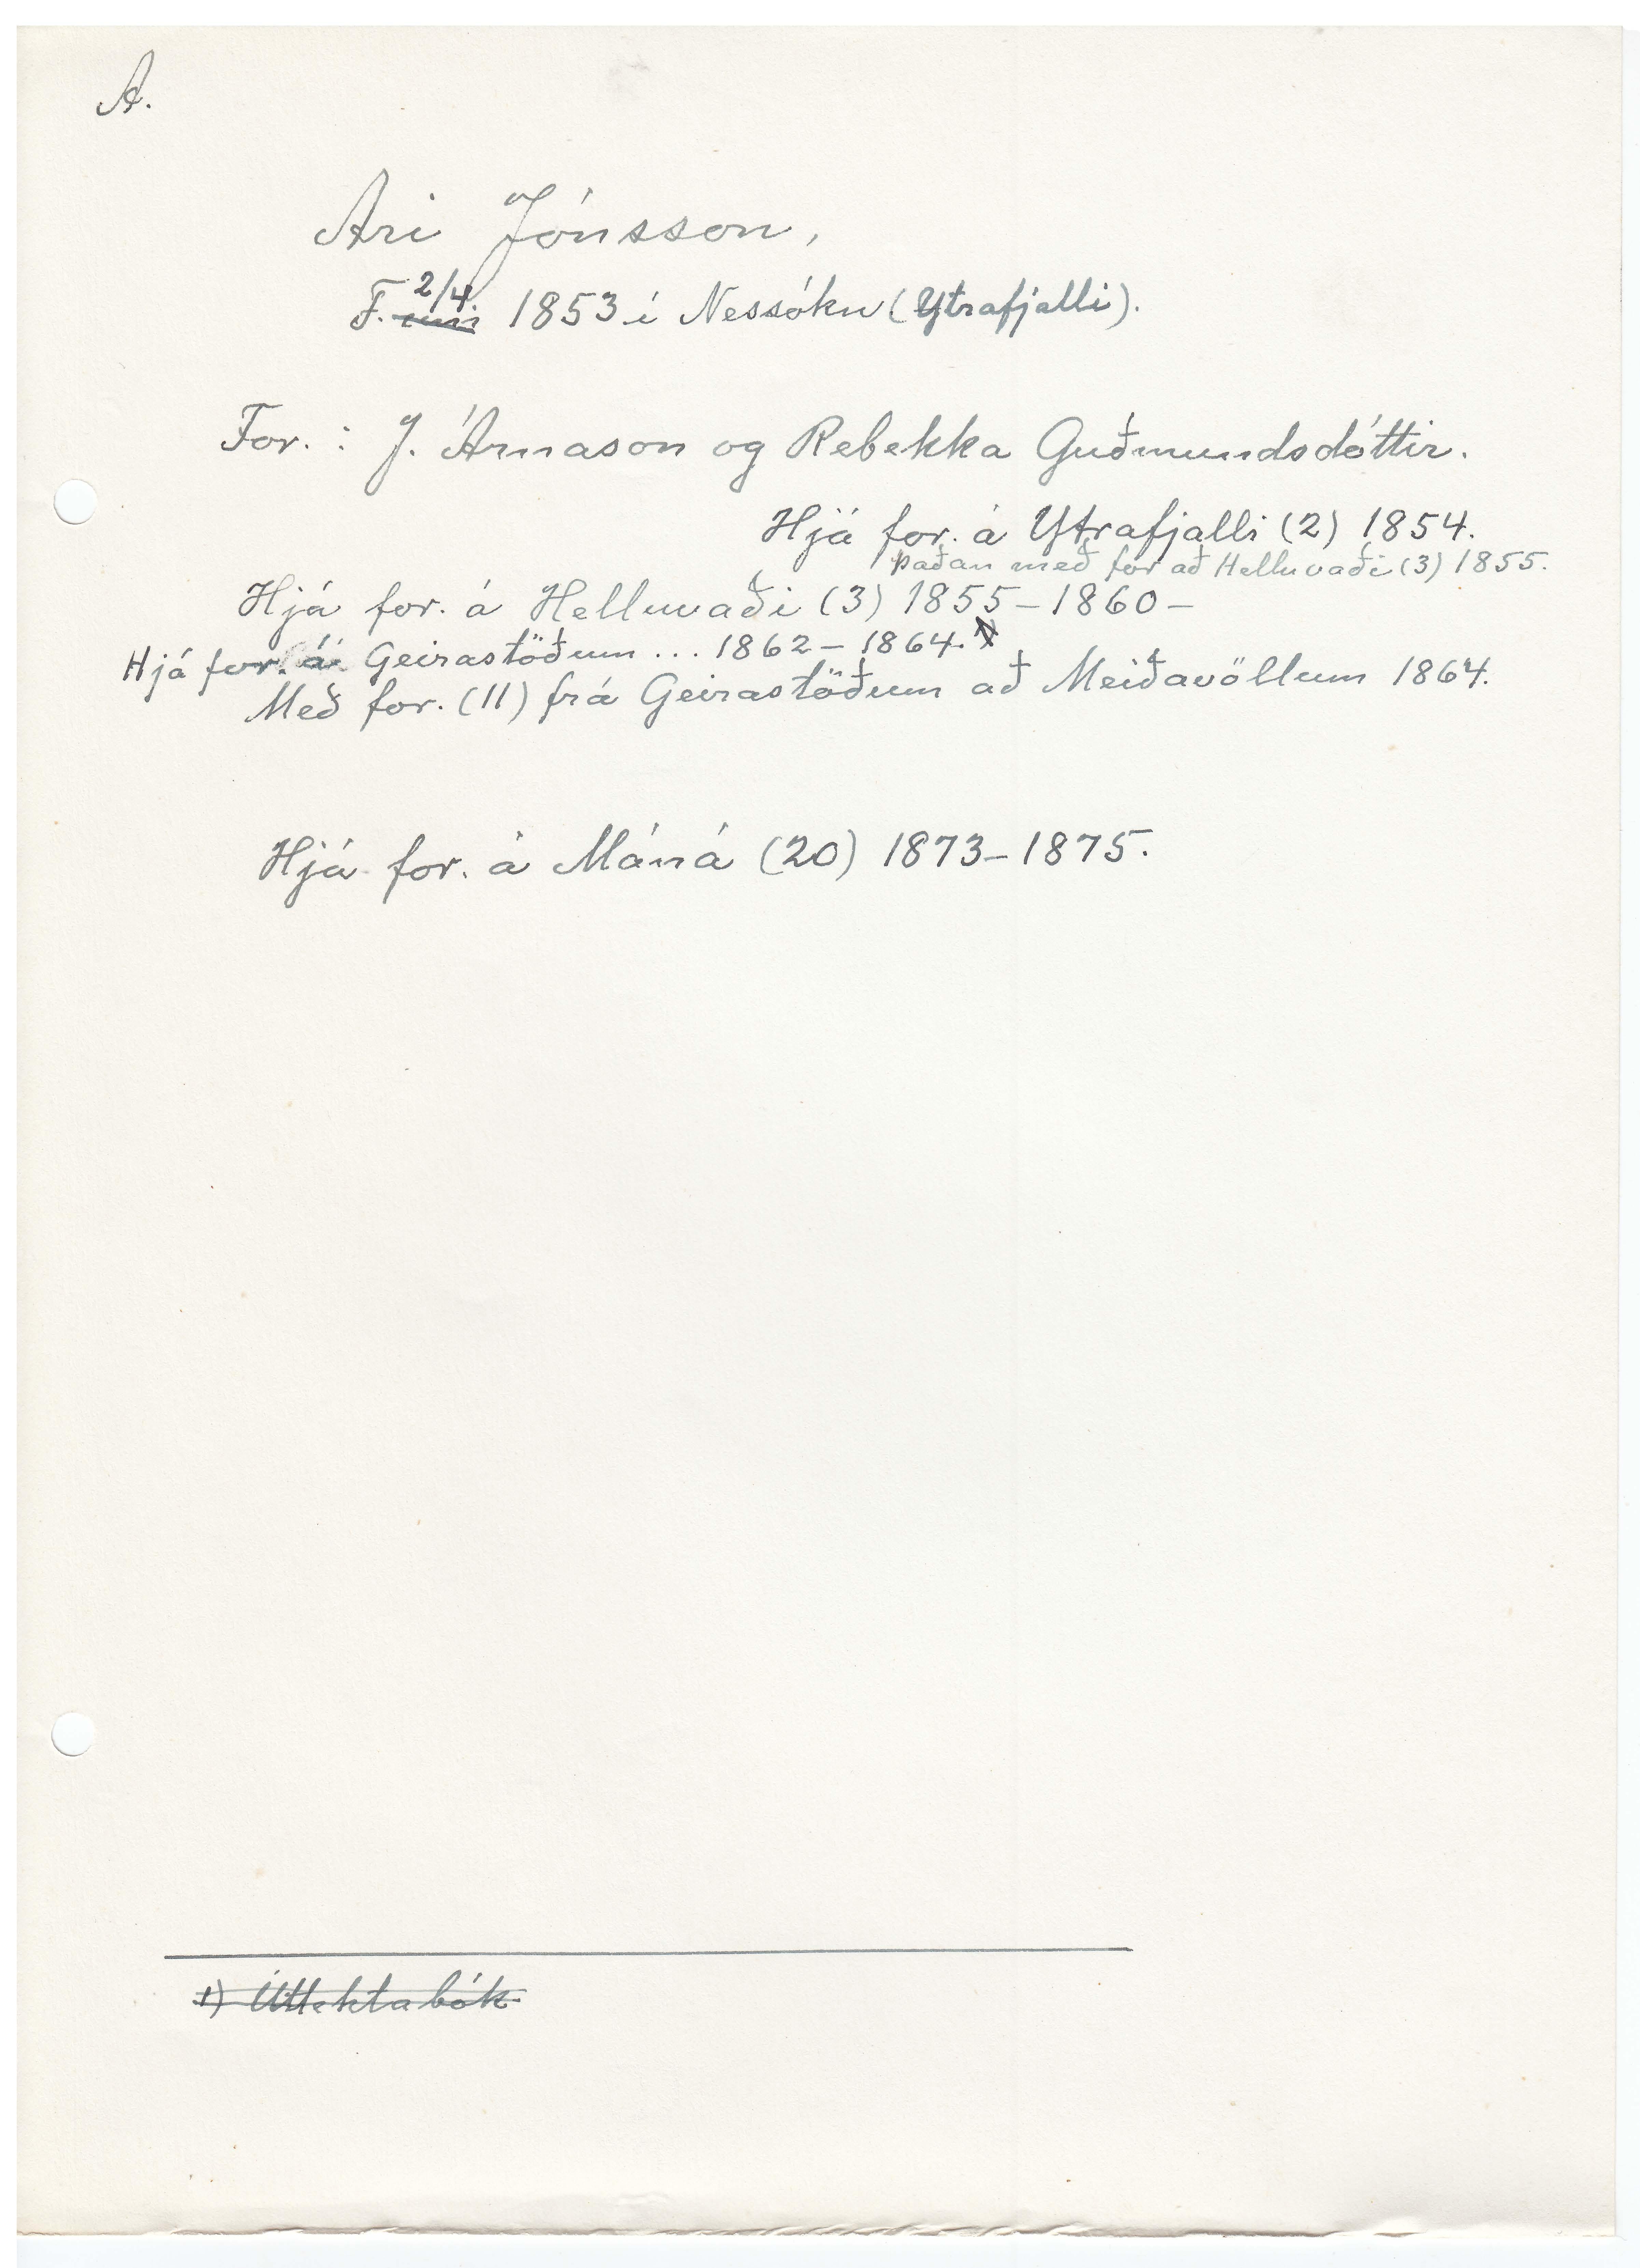 A.
Ari Jónsson,
F. 2/4 um 1853 í Nessókn (Ytrafjalli).
For. : J. Árnason og Rebekka Guðmundsdóttir.
Hjá for. á Ytrafjalli (2) 1854.
Þaðan með for að Helluvaði (3) 1855.
Hjá for. á Helluvaði (3) 1855 – 1860 –
Hjá for. á Geirastöðum ... 1862 – 1864. 1)
Með for. (11) frá Geirastöðum að Meiðavöllum 1864.
Hjá for. á Máná (20) 1873 – 1875.
1) Úttektabók